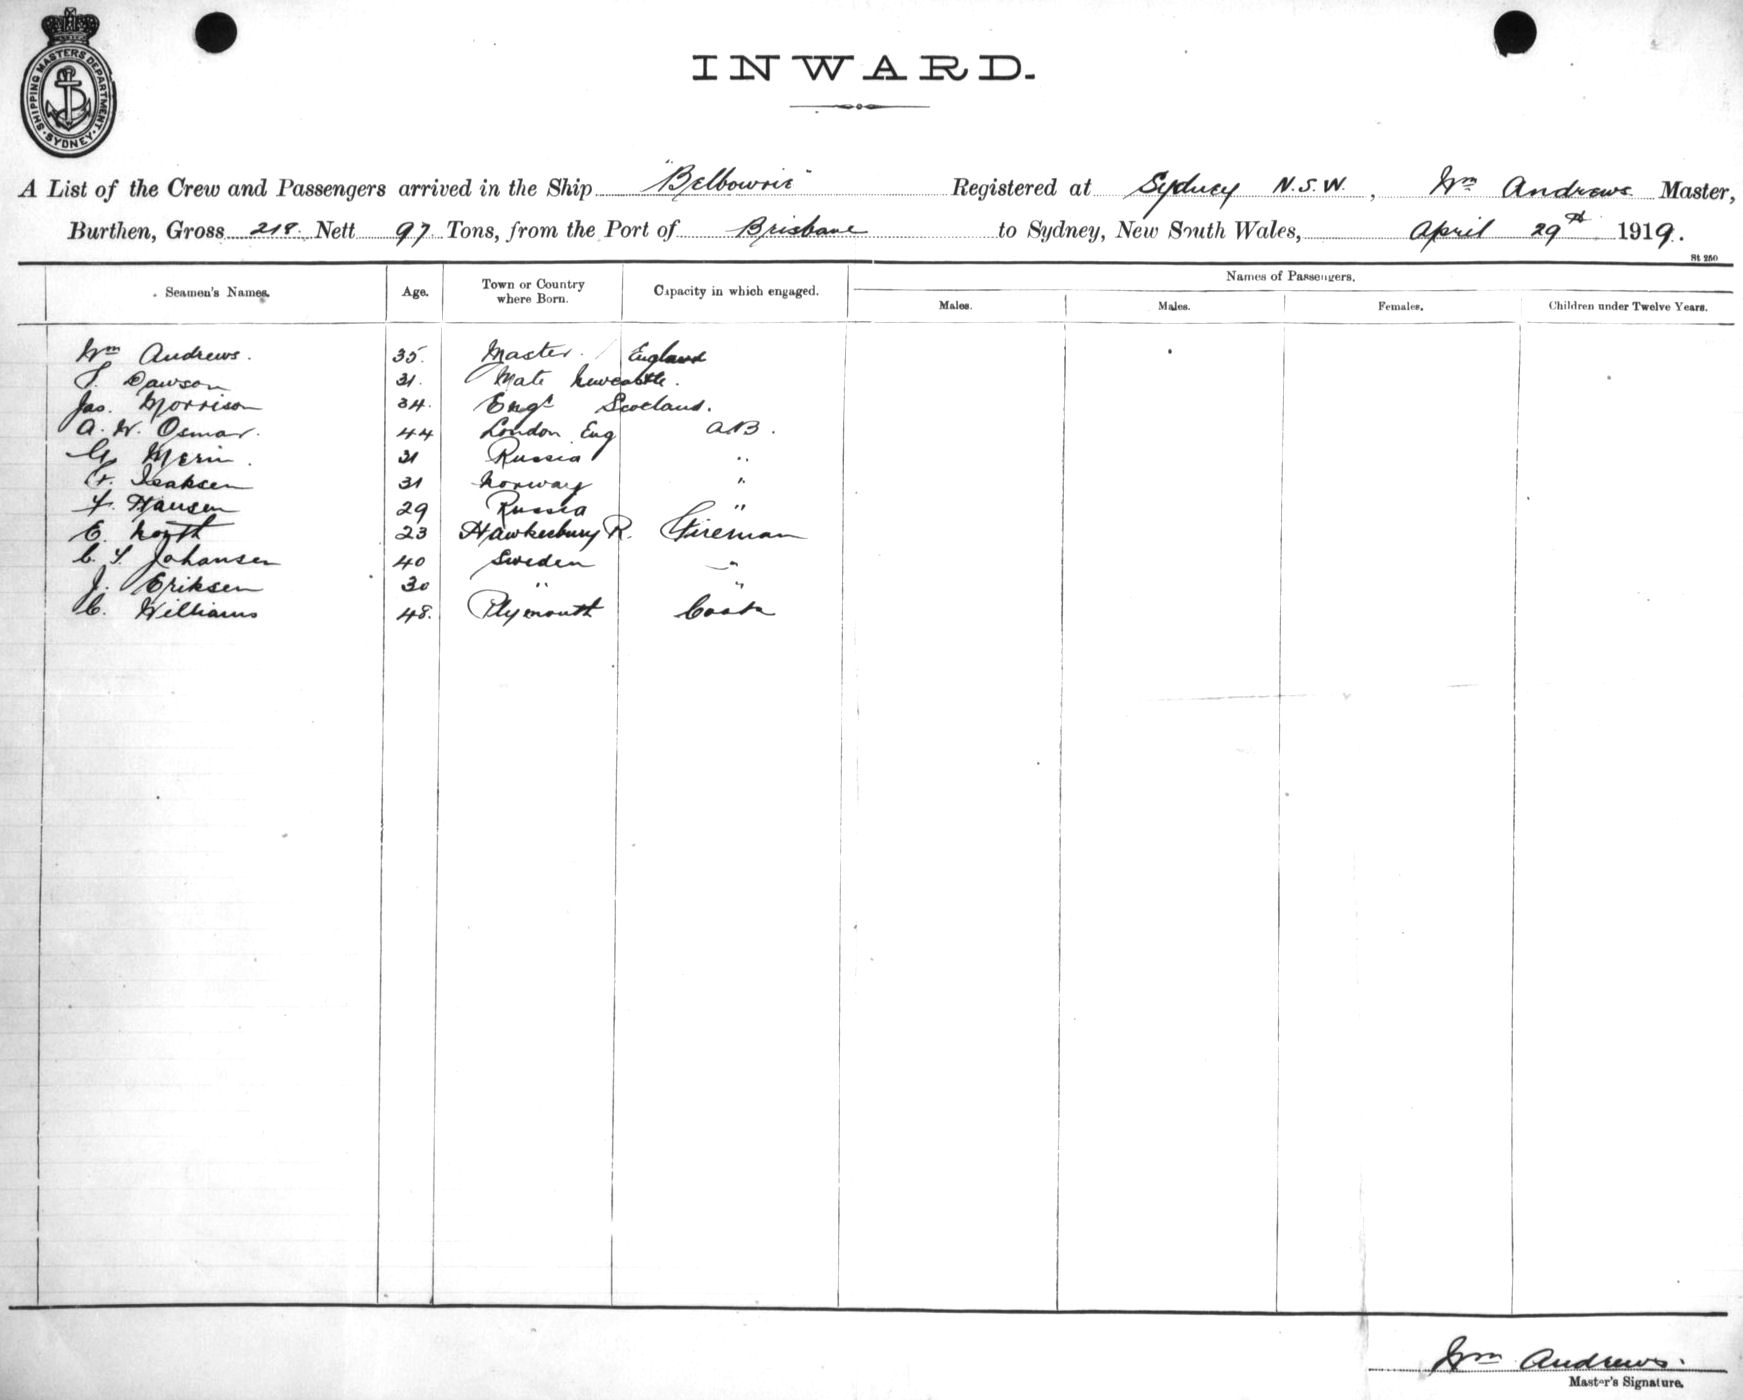 SHIPPING MASTERS DEPARTMENT. SYDNEY
INWARD.
A List of the Crew and Passengers arrived in the Ship "Belbowrie" Registered at Sydney N.S.W., Wm Andrews Master,
Burthen, Gross 218. Nett 97 Tons, from the Port of Brisbane to Sydney, New South Wales, April 29th 1919.
St 250
Seamen's Names. Age. Town or Country where Born. Capacity in which engaged. Names of Passengers.
Males. Males. Females. Children under Twelve Years.
Wm Andrews. 35. Master. England
T. Dawson 31. Mate Newcastle.
Jas. Morrison 34. Engr Scotland.
A. W. Osmar. 44 London Eng AB.
G. Merin. 31 Russia "
Isaksen 31 Norway "
F. Hansen 29 Russia "
E. North 23 Hawkesbury R. Fireman
C. F. Johansen 40 Sweden "
J. Eriksen 30 " "
C. Williams 48. Plymouth Cook
Wm Andrews.
Master's Signature.